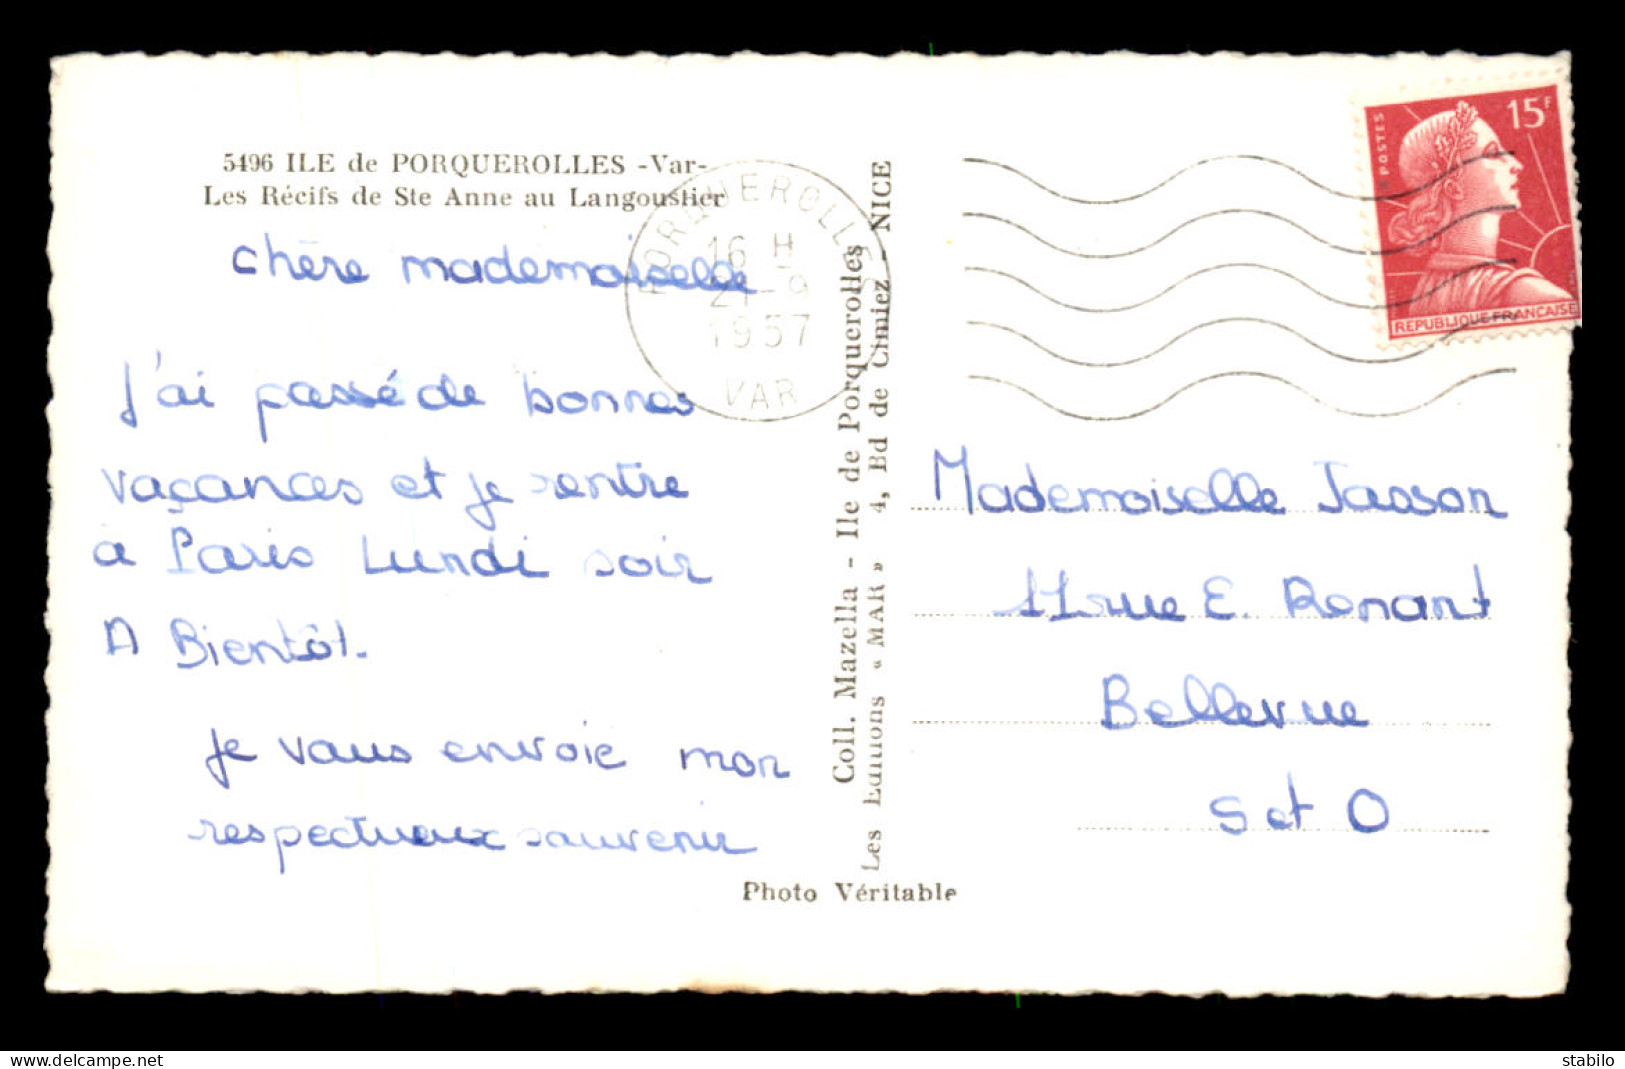 5496 ILE de PORQUEROLLES -Var-
Les Récifs de Ste Anne au Langoustier
chère mademoiselle
J'ai passé de bonnes
vaçances et je rentre
à Paris Lundi soir
A Bientôt.
je vous envoie mon
respectueux souvenir
PORQUEROLLES
16 H
21-9
1957
VAR
Coll. Mazella - Ile de Porquerolles
Les Editions « MAR » 4, Bd de Cimiez - NICE
Photo Véritable
POSTES
15F
REPUBLIQUE FRANCAISE
Mademoiselle Jasson
11 rue E. Renant
Bellevue
S et O
www.delcampe.net
stabilo